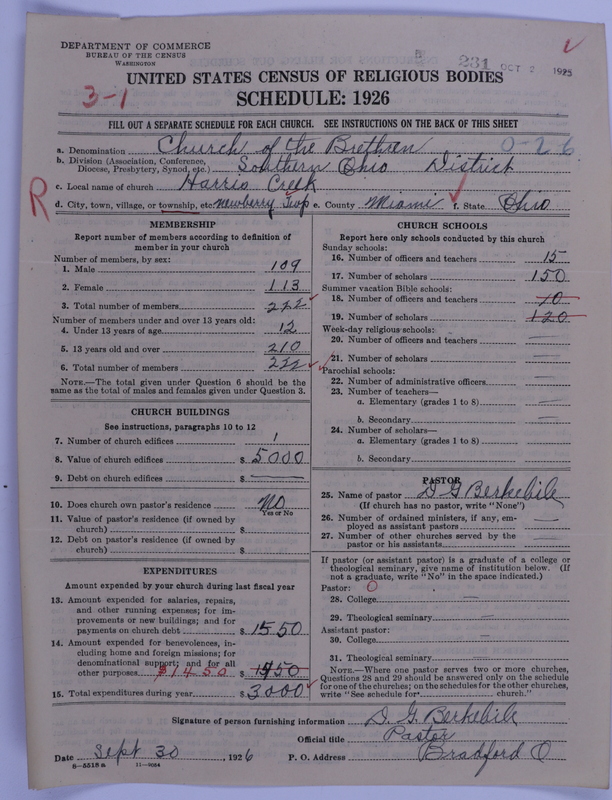 DEPARTMENT OF COMMERCE
BUREAU OF THE CENSUS
WASHINGTON
231 OCT 2 1925
UNITED STATES CENSUS OF RELIGIOUS BODIES
3-1
SCHEDULE: 1926
FILL OUT A SEPARATE SCHEDULE FOR EACH CHURCH. SEE INSTRUCTIONS ON THE BACK OF THIS SHEET
a. Denomination Church of the Brethren 0-26
b. Division (Association, Conference, Diocese, Presbytery, Synod, etc.) Southern Ohio District
c. Local name of church Harris Creek
R
d. City, town, village, or township, etc. Newberry Twp e. County Miami f. State Ohio
MEMBERSHIP
Report number of members according to definition of
member in your church
Number of members, by sex:
1. Male 109
2. Female 113
3. Total number of members 222
Number of members under and over 13 years old:
4. Under 13 years of age 12
5. 13 years old and over 210
6. Total number of members 222
NOTE.—The total given under Question 6 should be the
same as the total of males and females given under Question 3.
CHURCH BUILDINGS
See instructions, paragraphs 10 to 12
7. Number of church edifices 1
8. Value of church edifices $ 5000
9. Debt on church edifices $
10. Does church own pastor's residence No
Yes or No
11. Value of pastor's residence (if owned by
church) $
12. Debt on pastor's residence (if owned by
church) $
EXPENDITURES
Amount expended by your church during last fiscal year
13. Amount expended for salaries, repairs,
and other running expenses; for im-
provements or new buildings; and for
payments on church debt $ 1550
14. Amount expended for benevolences, in-
cluding home and foreign missions; for
denominational support; and for all
other purposes. $1450 $ 1950
15. Total expenditures during year $ 3000
CHURCH SCHOOLS
Report here only schools conducted by this church
Sunday schools:
16. Number of officers and teachers 15
17. Number of scholars 150
Summer vacation Bible schools:
18. Number of officers and teachers 10
19. Number of scholars 120
Week-day religious schools:
20. Number of officers and teachers
21. Number of scholars
Parochial schools:
22. Number of administrative officers
23. Number of teachers—
a. Elementary (grades 1 to 8)
b. Secondary
24. Number of scholars—
a. Elementary (grades 1 to 8)
b. Secondary
PASTOR
25. Name of pastor D G Berkebile
(If church has no pastor, write "None")
26. Number of ordained ministers, if any, em-
ployed as assistant pastors
27. Number of other churches served by the
pastor or his assistants
If pastor (or assistant pastor) is a graduate of a college or
theological seminary, give name of institution below. (If
not a graduate, write "No" in the space indicated.)
Pastor: O
28. College
29. Theological seminary
Assistant pastor:
30. College
31. Theological seminary
NOTE.—Where one pastor serves two or more churches,
Questions 28 and 29 should be answered only on the schedule
for one of the churches; on the schedules for the other churches,
write "See schedule for church."
Signature of person furnishing information D. G. Berkebile
Official title Pastor
Date Sept 30, 1926 P. O. Address Bradford O
8—5518 a 11—9054